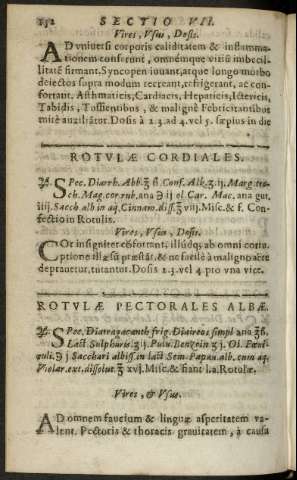 132 SECTIO VII.
Vires, Vsus, Dosis.
AD vniuersi corporis caliditatem & inflamma-
tionem conferunt, omnémque virtū imbecil-
litatē firmant. Syncopen iuuant, atque longo morbo
deiectos supra modum recreant, refrigerant, ac con-
fortant. Asthmaticis, Cardiacis, Hepaticis, Ictericis,
Tabidis, Tossientibus, & malignè Febricitantibus
mirè auxiliātur. Dosis à 2.3. ad 4. vel 5. sæpius in die
ROTVLÆ CORDIALES.
℞. SPec. Diarrh. Abb. ʒ ß. Conf. Alk. ʒ. ij. Marg. tro-
ch. Mag. cor. rub. ana ℈ ij el Car. Mac. ana gut.
iiij. Sacch. alb in aq. Cinnam. diss. ℥ vij. Misc. & f. Con-
fectio in Rotulis.
Vires, Vsus, Dosis.
COr insigniter cōfortant, illúdq; ab omni corru-
ptione illæsū præstāt, & ne facilè à maligno aëre
deprauetur, tutantur. Dosis 2.3. vel 4 pro vna vice.
ROTVLÆ PECTORALES ALBÆ.
℞. SPec. Diatragacanth frig. Diaireos simpl ana ʒß.
Lact. Sulphuris. ʒ ij. Pulu. Benzoin ʒ j. Ol. Fœni-
culi. ℈ j Sacchari albiss. in lact. Sem. Papau. alb. cum aq.
Violar. ext. dissolut. ℥ xvj. Misc. & fiant l.a. Rotulæ.
Vires, & Vsus.
AD omnem faucium & linguæ asperitatem va-
lent. Pectoris & thoracis grauitatem, à causa